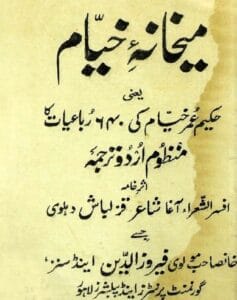 میخانۂ خیّام
یعنی
حکیم عمر خیام کی ۶۴۰ رباعیات کا
منظوم اردو ترجمہ
اثر خامہ
افسر الشعراء، آغا شاعر قزلباش دہلوی
جسے
خانصاحب مولوی فیروز الدین اینڈ سنز،
گورنمنٹ پرنٹرز اینڈ پبلشرز لاہور